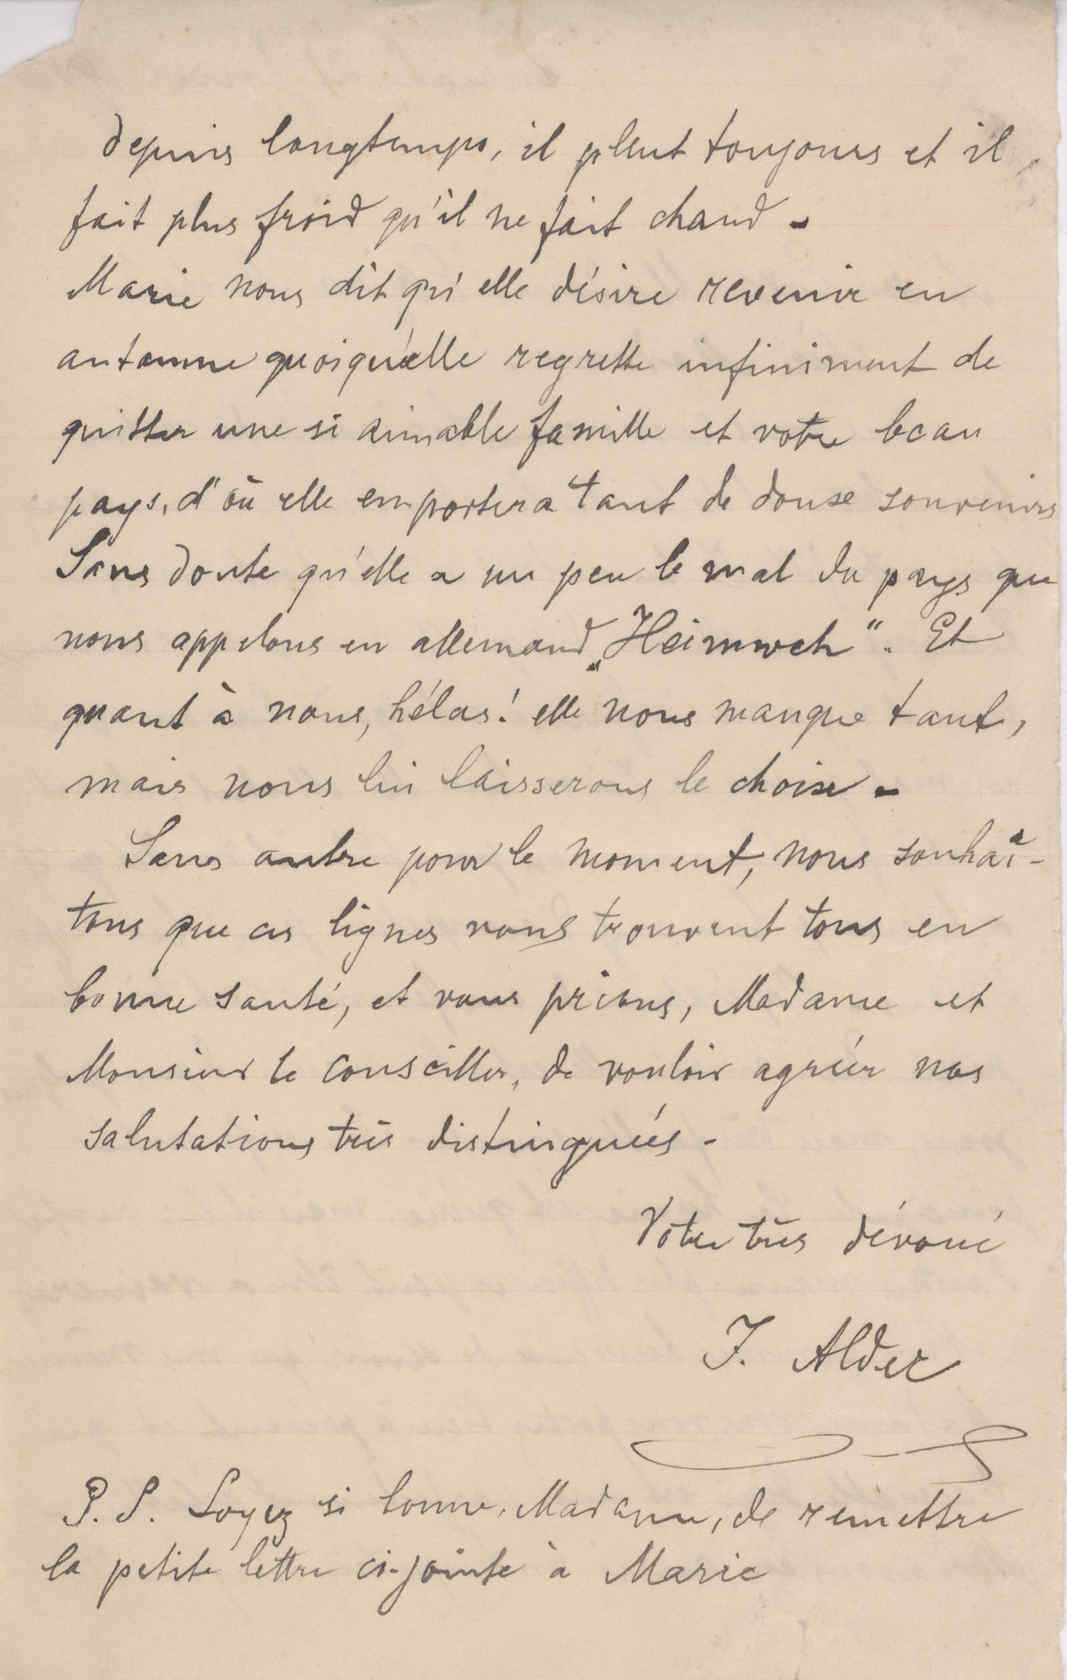 depuis longtemps, il pleut toujours et il
fait plus froid qu'il ne fait chaud -
Marie nous dit qu'elle désire revenir en
automne quoiqu'elle regrette infiniment de
quitter une si aimable famille et votre beau
pays, d'où elle emportera tant de doux souvenirs
Sans doute qu'elle a un peu le mal du pays que
nous appelons en allemand „Heimweh“. Et
quant à nous, hélas! elle nous manque tant,
mais nous lui laisserons le choix -
Sans autre pour le moment, nous souhai-
tons que ces lignes vous trouvent tous en
bonne santé, et vous prions, Madame et
Monsieur le conseiller, de vouloir agréer nos
salutations très distinguées -
Votre très dévoué
J. Alder
P. S. Soyez si bonne, Madame, de remettre
la petite lettre ci-jointe à Marie